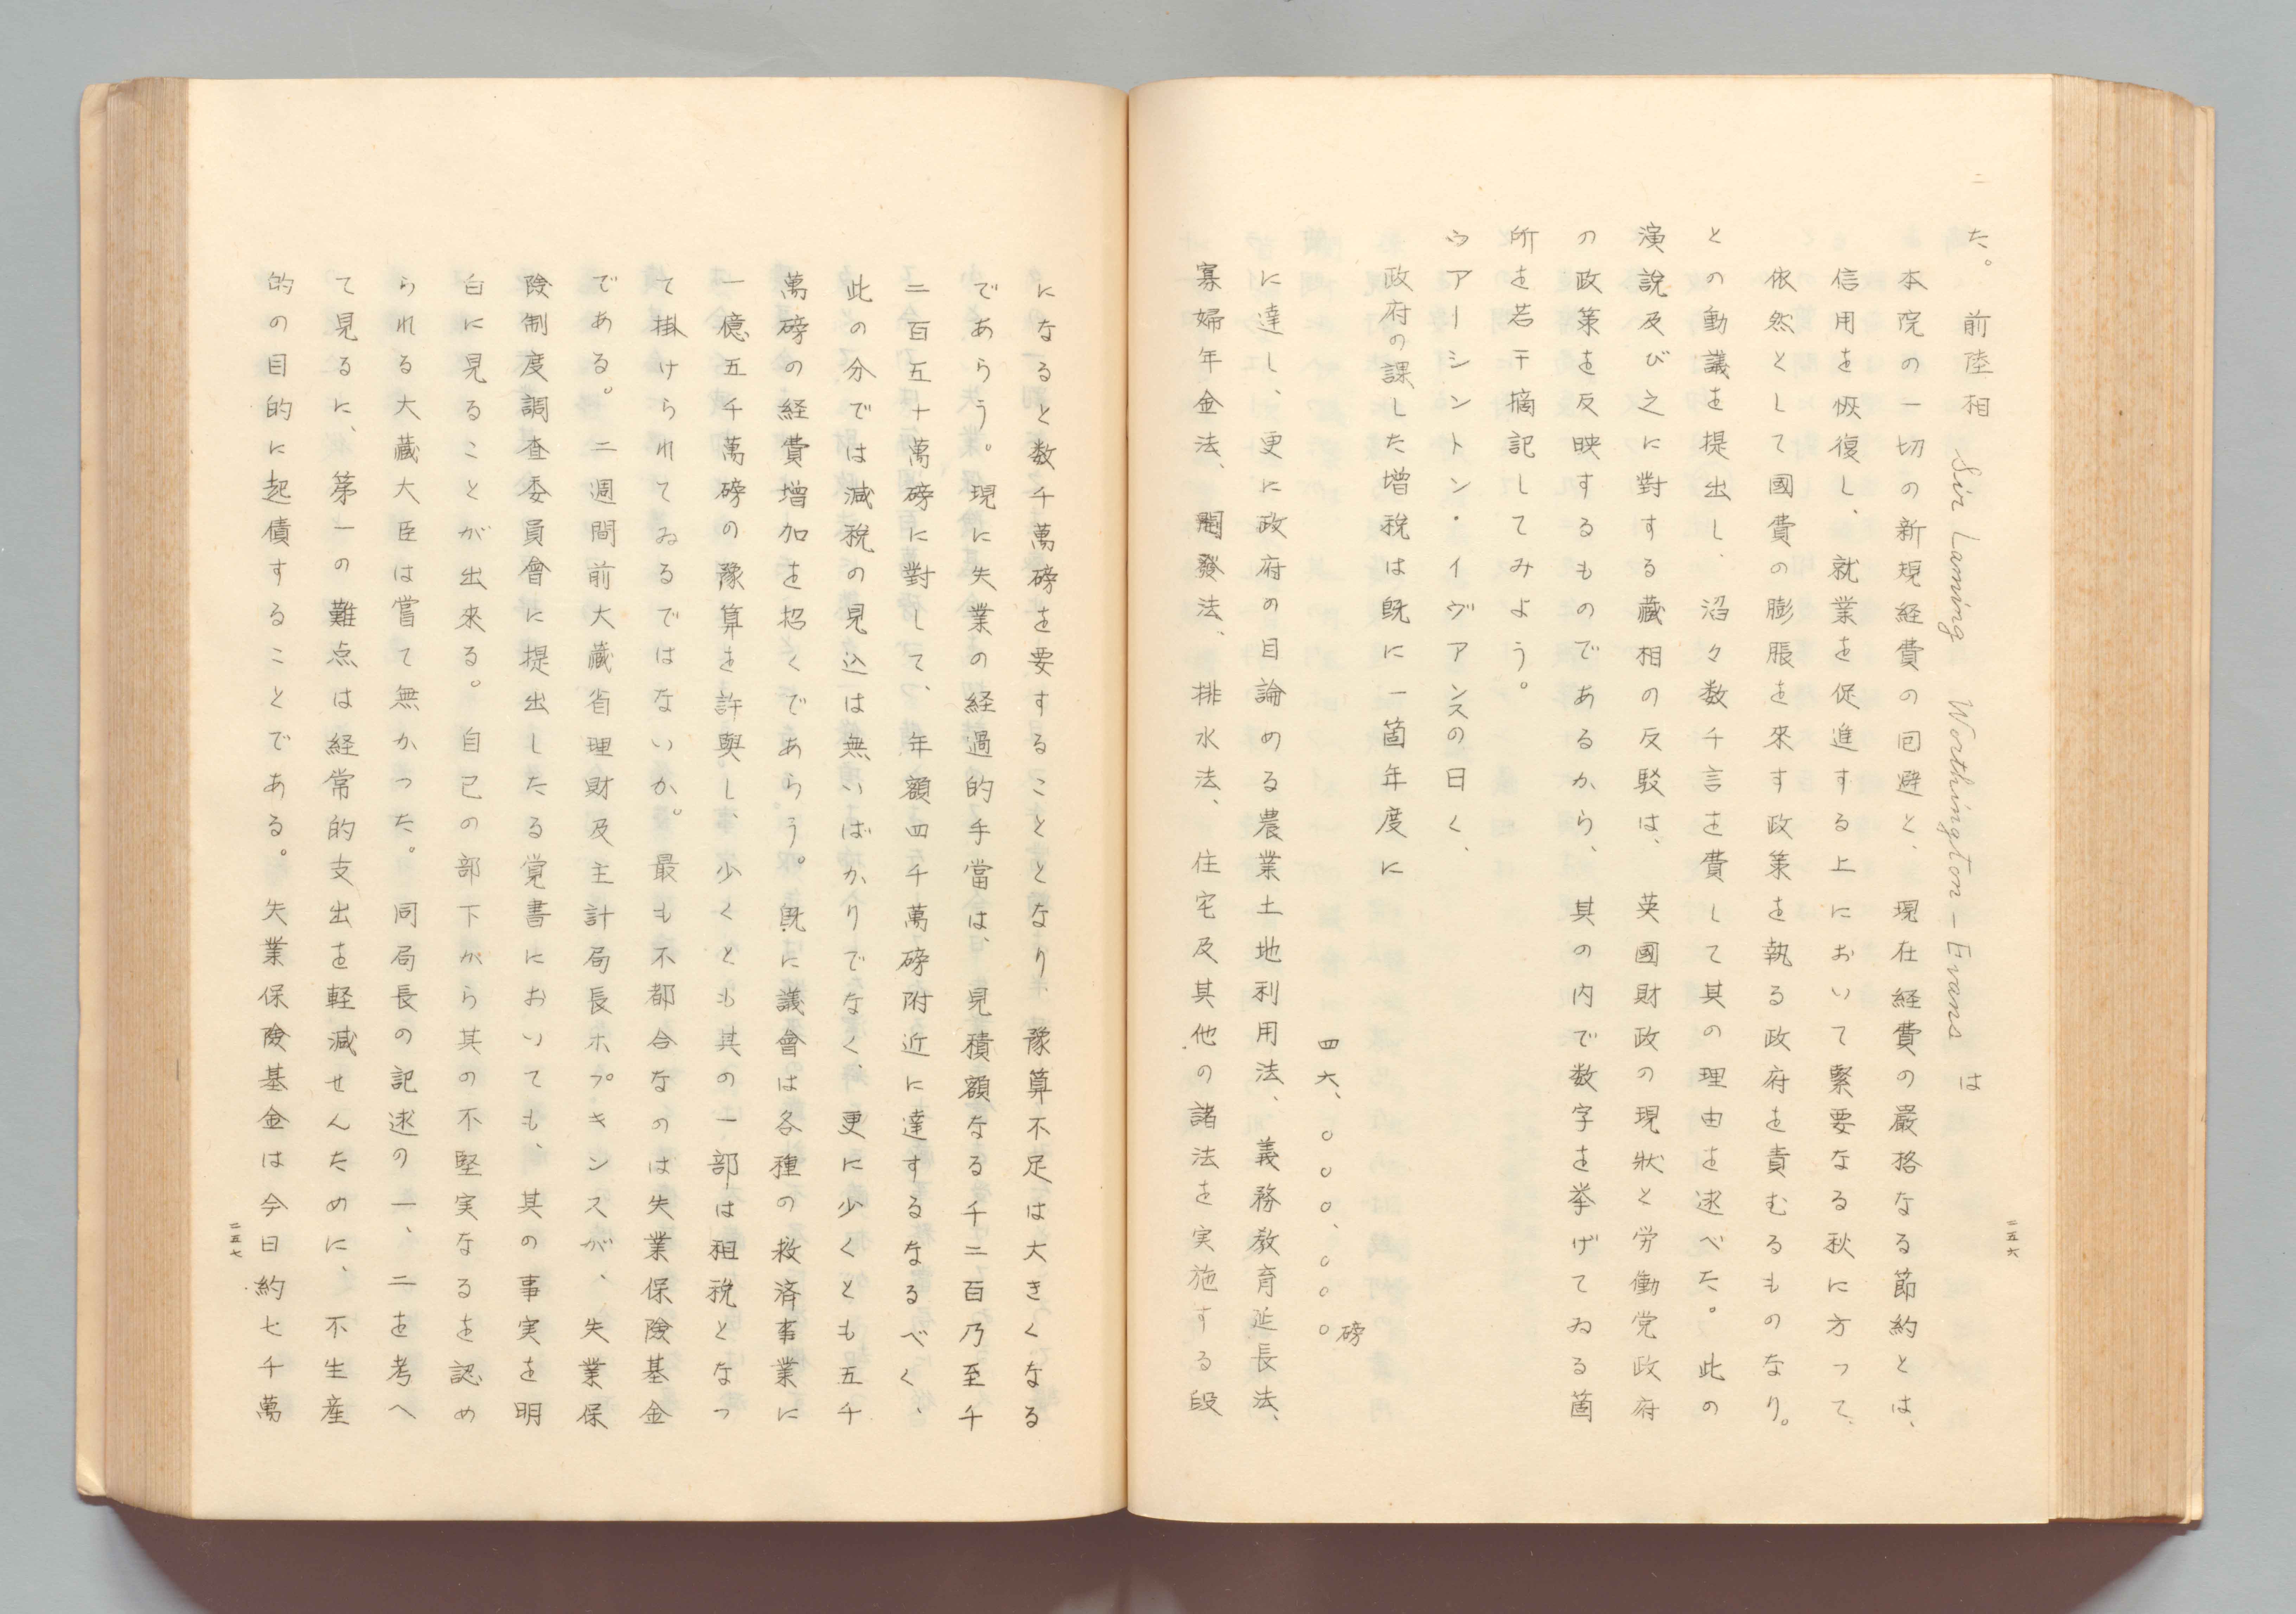 た。 前陸相 Sir Laming Worthington-Evans は
本院の一切の新規経費の回避と、現在経費の嚴格なる節約とは、
信用を恢復し、就業を促進する上において緊要なる秋に方って、
依然として國費の膨脹を來す政策を執る政府を責むるものなり。
との動議を提出し、滔々数千言を費して其の理由を逑べた。此の
演說及び之に對する藏相の反駁は、英國財政の現狀と労働党政府
の政策を反映するものであるから、其の内で数字を挙げてゐる箇
所を若干摘記してみよう。
ウアーシントン・イヴアンスの日く、
政府の課した增税は旣に一箇年度に
四六、〇〇〇、〇〇〇磅
に達し、更に政府の目論める農業土地利用法、義務教育延長法、
寡婦年金法、開發法、排水法、住宅及其他の諸法を実施する段
二五六
になると数千萬磅を要することとなり、豫算不足は大きくなる
であらう。現に失業の経過的手當は、見積額なる千二百乃至千
二百五十萬磅に對して、年額四千萬磅附近に達するなるべく、
此の分では減税の見込は無いばかりでなく、更に少くとも五千
萬磅の経費增加を招くであらう。旣に議會は各種の救済事業に
一億五千萬磅の豫算を許與し、少くとも其の一部は租税となっ
て掛けられてゐるではないか。最も不都合なのは失業保險基金
である。二週間前大藏省理財及主計局長ホプキンスが、失業保
險制度調査委員會に提出したる覚書においても、其の事実を明
白に見ることが出來る。自己の部下から其の不堅実なるを認め
られる大藏大臣は嘗て無かつた。同局長の記逑の一、二を考へ
て見るに、第一の難点は経常的支出を軽減せんために、不生産
的の目的に起債することである。失業保險基金は今日約七千萬
二五七